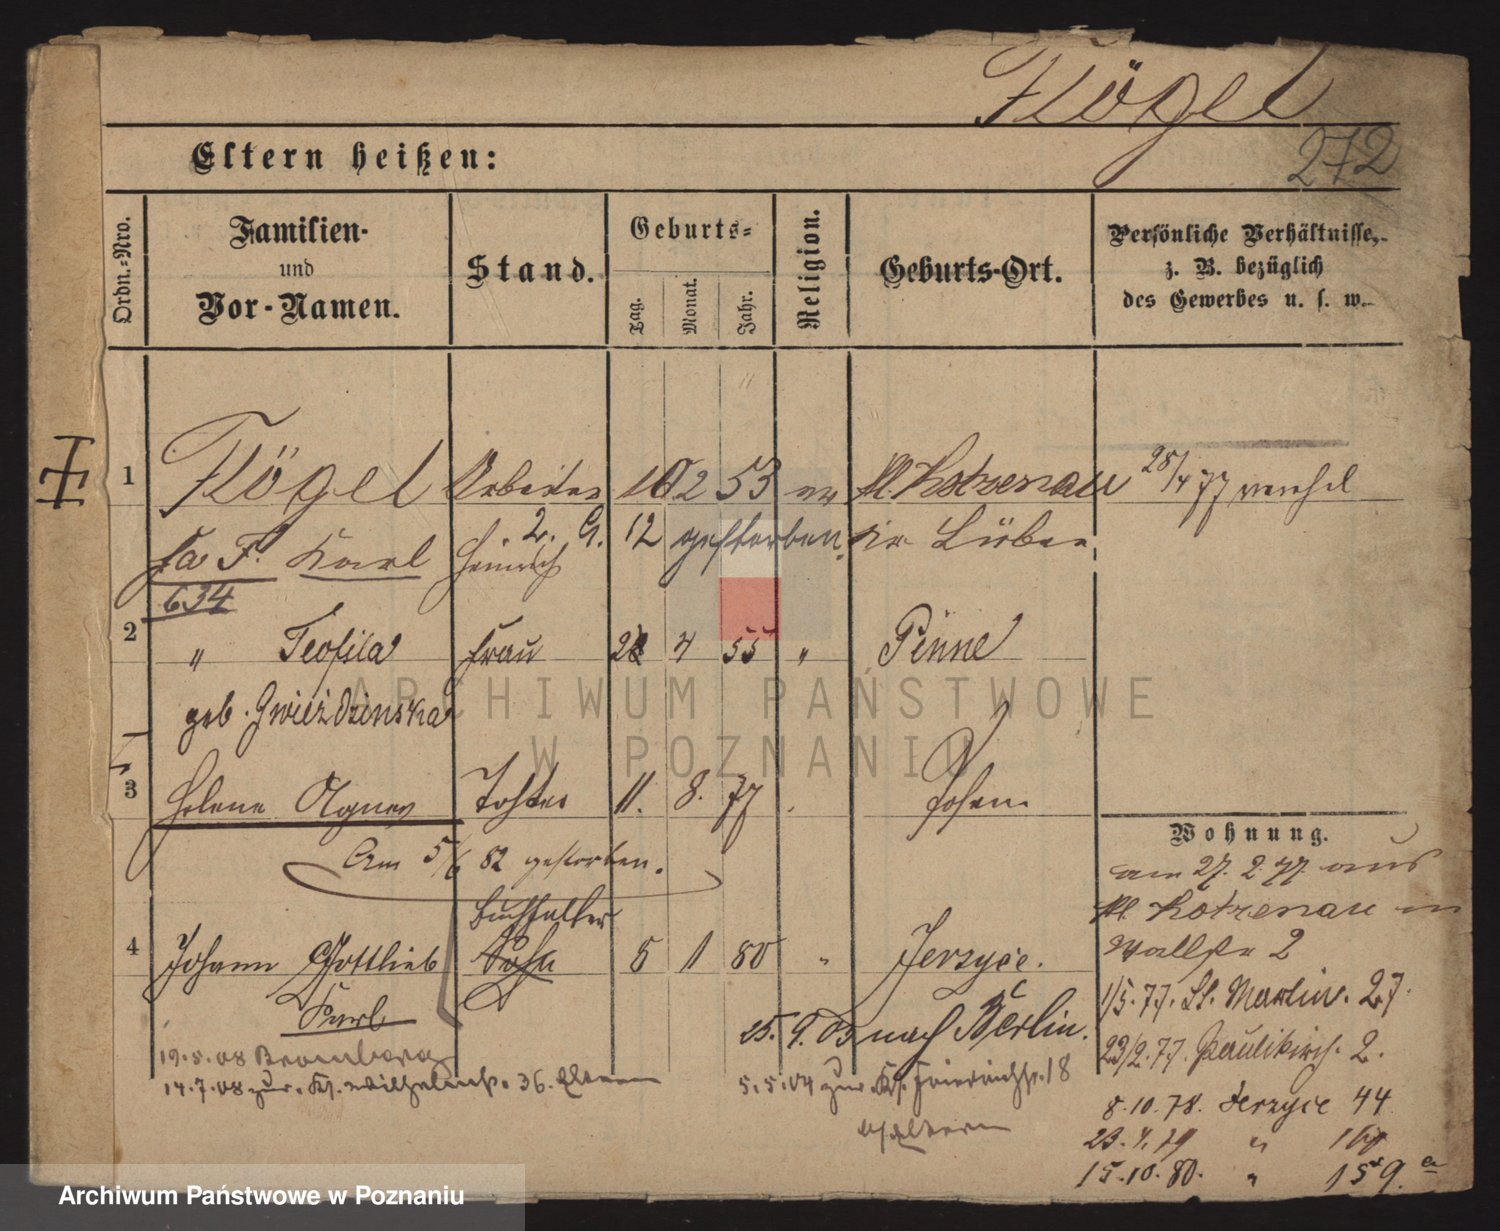 Flögel
272
Eltern heißen:
Ordn.-Nro.
Familien-
und
Vor-Namen.
Stand.
Geburts-
Tag.
Monat.
Jahr.
Religion.
Geburts-Ort.
Persönliche Verhältnisse,
z. B. bezüglich
des Gewerbes u. s. w.
1 Flögel Arbeiter 10 2 53 ev Kl. Kotzenau 28/4 77
Karl Heinrich 2. G. 12 gestorben. Kr. Lüben
634
2 " Teofila Frau 4 55 " Pinne
geb. Gwieździnska
3 Helene Agnes Tochter 11. 8. 77 Posen.
Am 5/6 82 gestorben.
Buchhalter
4 Johann Gottlieb Sohn 5 1 80 " Jerzyce.
Karl
25. 9. 03 nach Berlin.
19.5.08 Bromberg
14.7.08 zur. Kr. Wilhelmstr. 36. Eltern
5.5.04 zur. Kr. Friedrichstr. 18
Eltern
Wohnung.
am 27. 2. 77. aus
Kl. Kotzenau in
Wallstr 2
1/5. 77. St. Martin. 27.
23/2. 77. Paulikirch. 2.
8.10.78. Jerzyce 44
23.4.79 "
15.10.80. " 159.a
ARCHIWUM PAŃSTWOWE
W POZNANIU
Archiwum Państwowe w Poznaniu